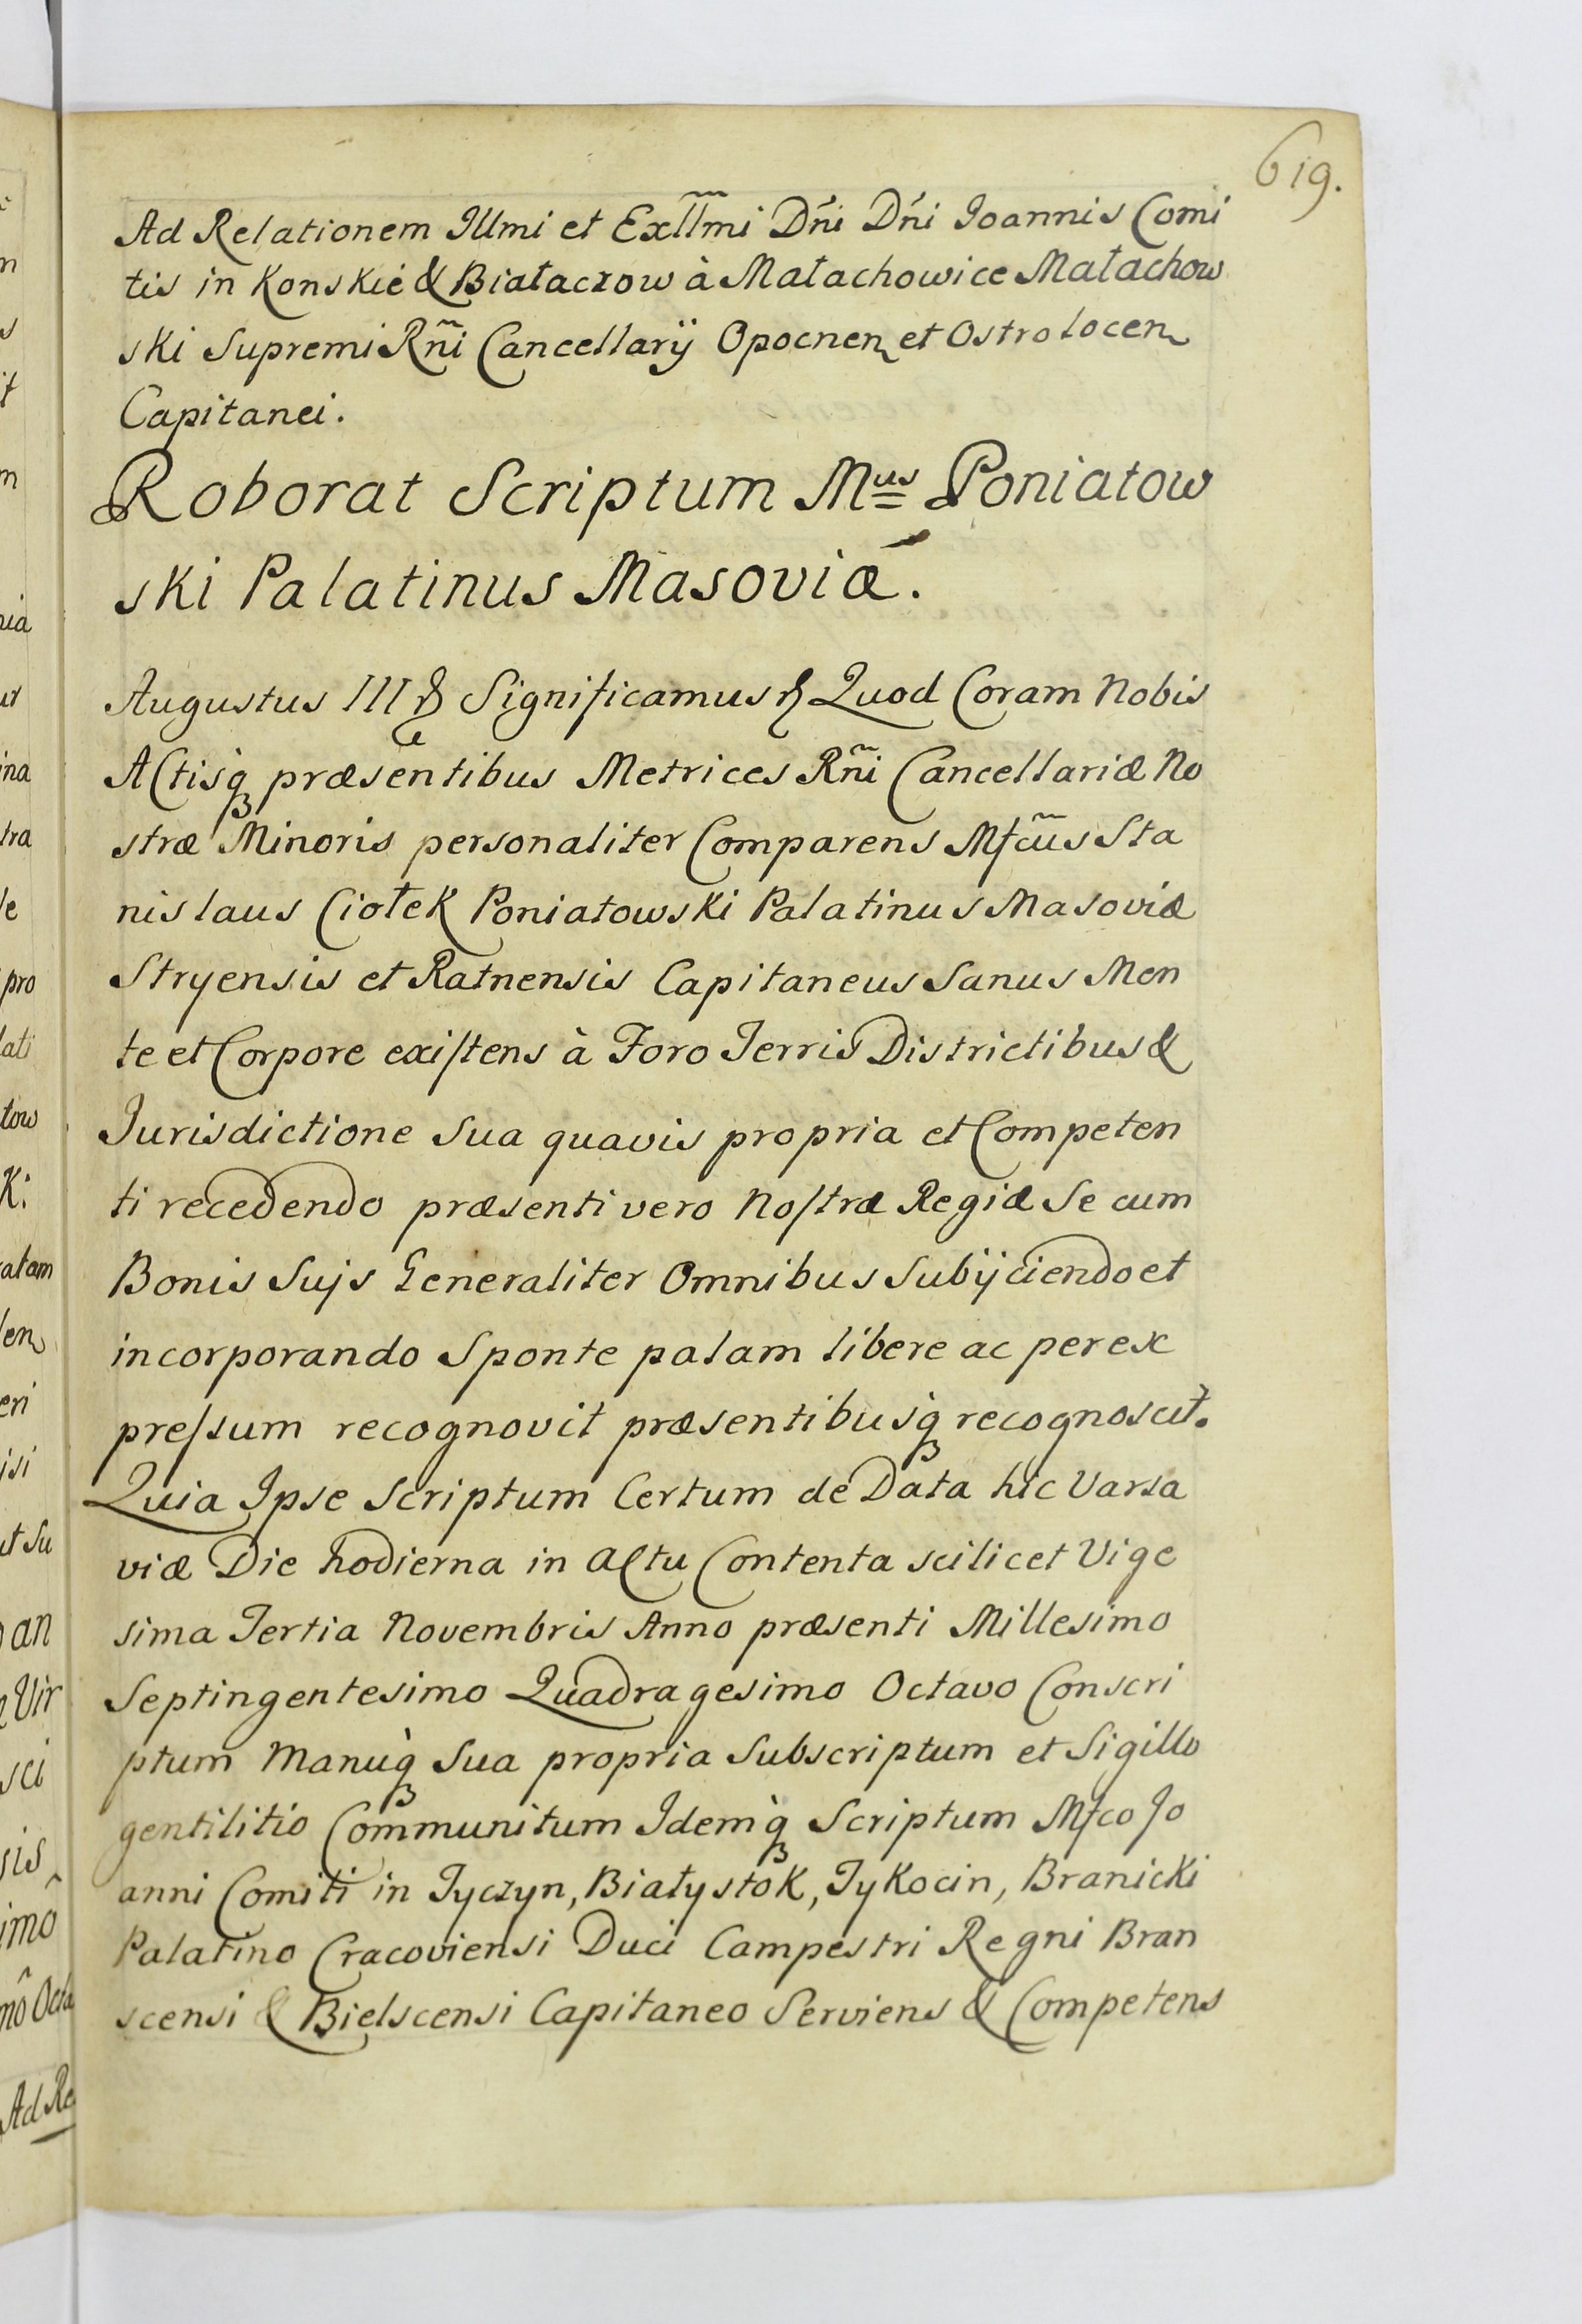 619.
Ad Relationem Illmi et Exllm̃i Dñi Dñi Joannis Comi
tis in Konskie & Białaczow à Małachowice Małachow
ski Supremi Rñi Cancellarij Opocnen et Ostrołocen
Capitanei.
Roborat Scriptum Mus Poniatow
ski Palatinus Masoviæ.
Augustus III Significamus Quod Coram Nobis
Actisq præsentibus Metrices Rñi Cancellariæ No
stræ Minoris personaliter Comparens Mfcũs Sta
nislaus Ciołek Poniatowski Palatinus Masoviæ
Stryensis et Ratnensis Capitaneus Sanus Men
te et Corpore existens à Foro Terris Districtibus &
Jurisdictione sua quavis propria et Competen
ti recedendo præsenti vero Nostræ Regiæ Se cum
Bonis Sujs Generaliter Omnibus Subijciendo et
incorporando Sponte palam libere ac per ex
pressum recognovit præsentibusq recognoscit.
Quia Ipse Scriptum Certum de Data hic Varsa
viæ Die hodierna in Actu Contenta scilicet Vige
sima Tertia Novembris Anno præsenti Millesimo
Septingentesimo Quadragesimo Octavo Conscri
ptum Manuq̀ Sua propria Subscriptum et Sigillo
gentilitio Communitum Idemq̀ Scriptum Mfco Jo
anni Comiti in Tyczyn, Białystok, Tykocin, Branicki
Palatino Cracoviensi Duci Campestri Regni Bran
scensi & Bielscensi Capitaneo Serviens & Competens